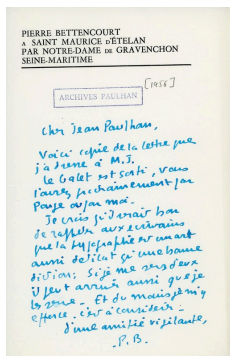 PIERRE BETTENCOURT
A SAINT MAURICE D'ÉTELAN
PAR NOTRE-DAME DE GRAVENCHON
SEINE-MARITIME
[1956]
ARCHIVES PAULHAN
Cher Jean Paulhan,
Voici copie de la lettre que
j'adresse à M.J.
Le Galet est sorti, vous
l'aurez prochainement par
Ponge ou par moi.
Je crois qu'il serait bon
de rappeler aux écrivains
que la typographie est un art
aussi délicat qu'une bonne
diction; si je me sers d'eux
il peut arriver aussi que je
les serve. Et du moins je m'y
efforce. C'est à considérer.
d'une amitié vigilante,
P.B.